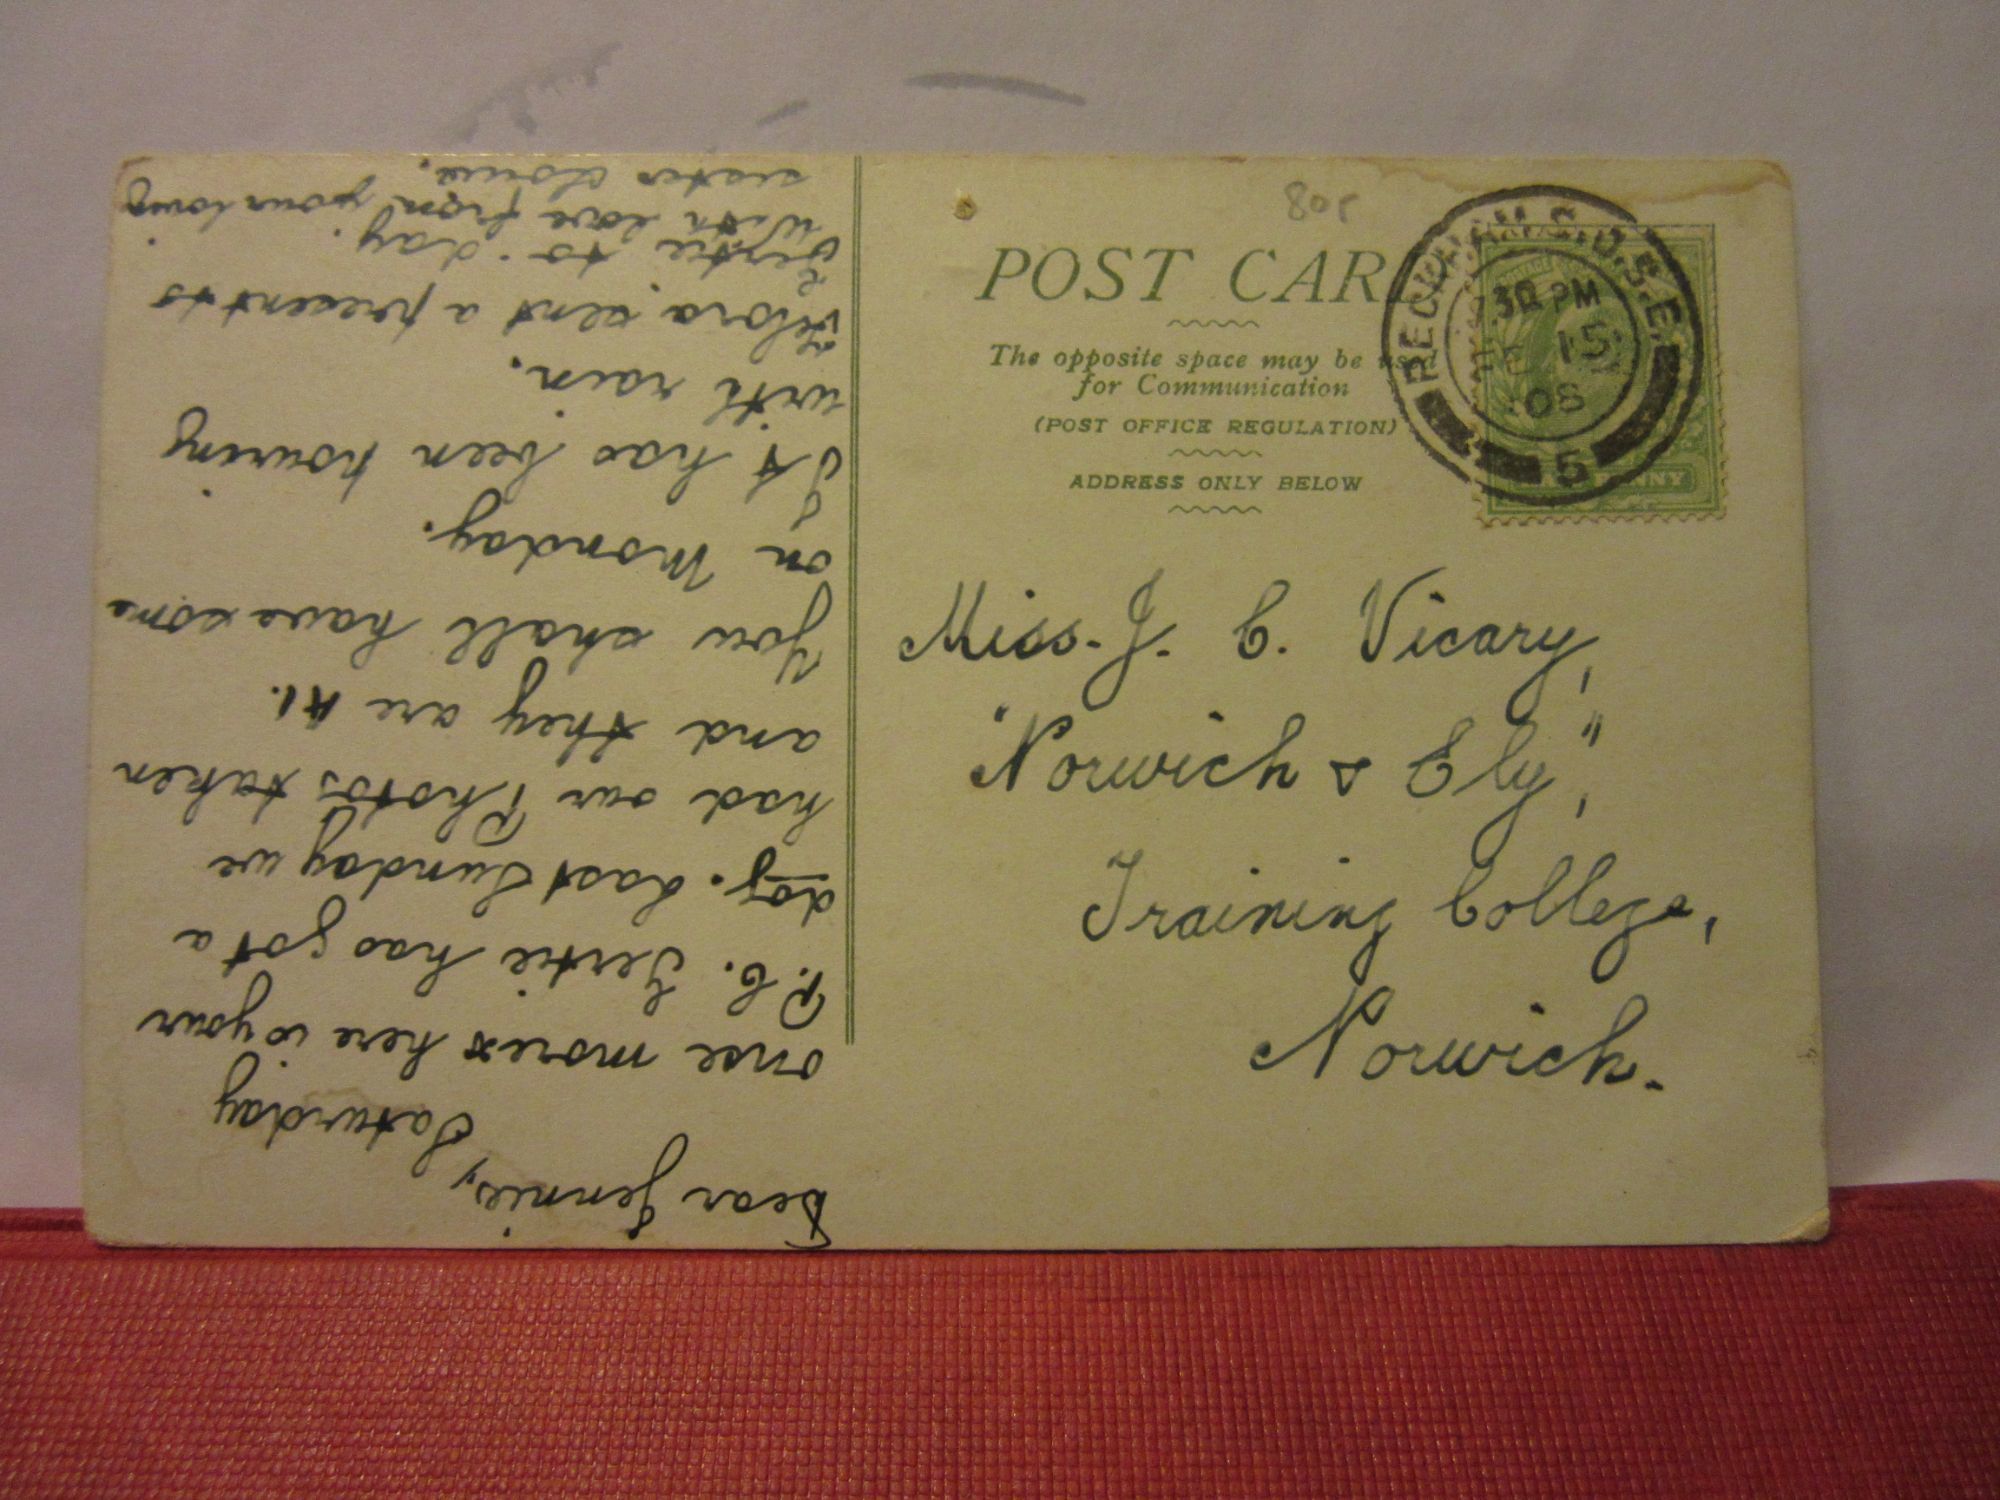 POST CARD
The opposite space may be used
for Communication
(POST OFFICE REGULATION)
ADDRESS ONLY BELOW
PECKHAM S.O.S.E.
30 PM
15
08
5
PENNY
Miss. J. C. Vicary,
"Norwich & Ely",
Training College,
Norwich.
Dear Jennie,
Saturday
once more & here is your
P.C. Gertie has got a
dog. Last Sunday we
had our Photos taken
and they are A1.
You shall have some
on Monday.
It has been pouring
with rain.
sent a present to
Gertie to-day.
With love from your loving
sister